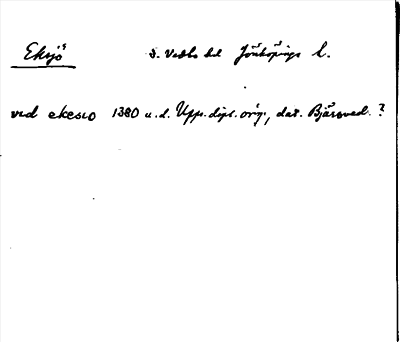 Eksjö S. Vedbo hd Jönköpings L.
ved ekesio 1380 u.d. Upps. dipl. orig., dat. Bjärsved. ?